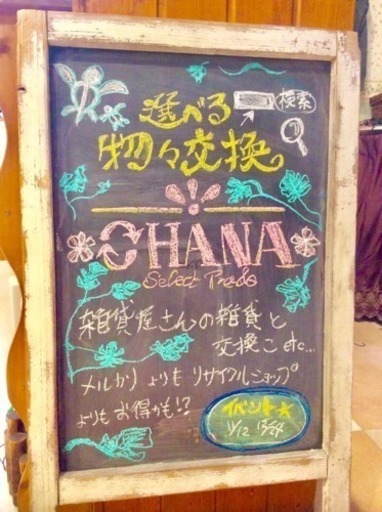 選べる
検索
物々交換
OHANA
Select Trade
雑貨屋さんの雑貨と
交換こ etc...
メルカリよりもリサイクルショップ
よりもお得かも!?
イベント☆
11/12